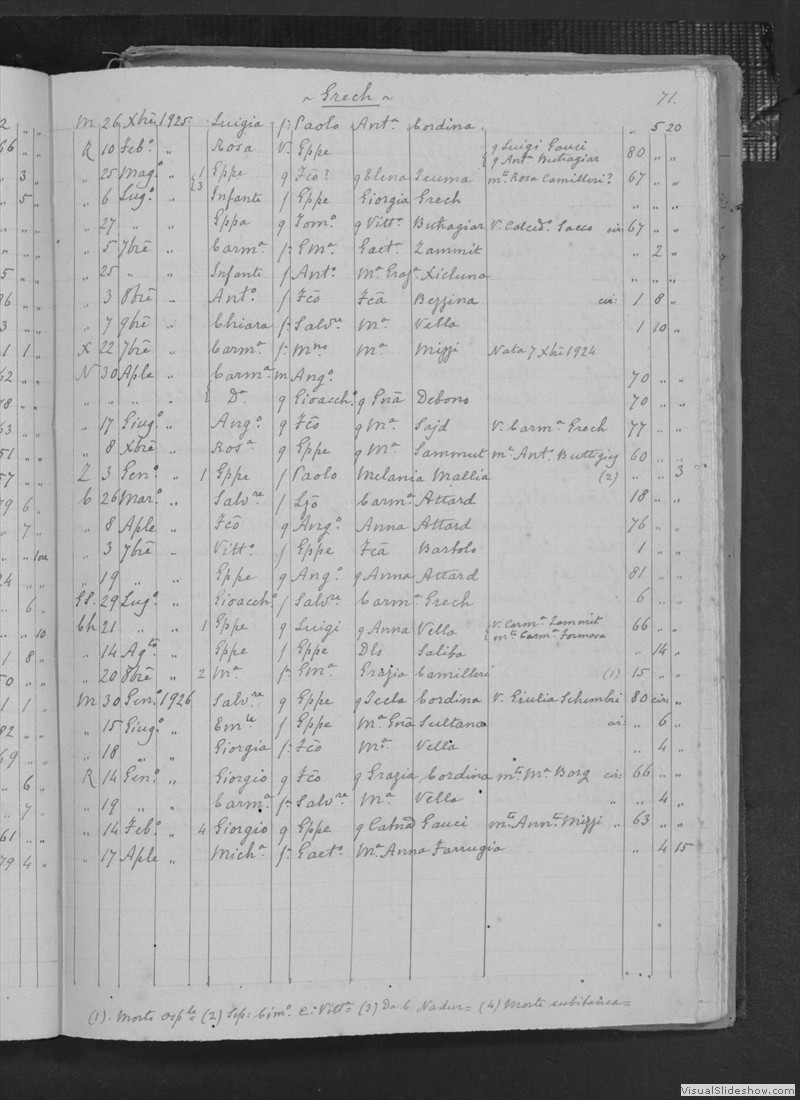 ~ Grech ~ 71.
M 26 Xbrē 1925 Luigia f.a Paolo Ant.a Cordina „ 5 20
R 10 Feb.o „ Rosa V. Eppe { q Luigi Gauci
q Ant.a Buttagiar 80 „ „
„ 25 Mag.o „ 1 3 Eppe q Fcō? q Elena Teuma m.to Rosa Camilleri? 67 „ „
„ 6 Lug.o „ Infante f Eppe Giorgia Grech „ „ „
„ 27 „ „ Eppa q Tom.o q Vitt.a Buttagiar V. Calced.o Sacco cir: 67 „ „
„ 5 7brē „ Carm.a f.a Em.a Gaet.a Zammit „ 2 „
„ 25 „ „ Infante f Ant.o M.a Graz.a Xicluna „ „ „
„ 3 8brē „ Ant.o f Fcō Fcā Bezzina cir: 1 8 „
„ 7 9brē „ Chiara f.a Salv.re M.a Vella 1 10 „
X 22 7brē „ Carm.a f.a M.no M.a Mizzi Nata 7 Xbrē 1924
N 30 Aple „ { Carm.a m Ang.o 70 „ „
„ „ „ „ D.a q Gioacch.o q Gnā Debono 70 „ „
„ 17 Giug.o „ Ang.o q Fcō q M.a Sajd V. Carm.a Grech 77 „ „
„ 8 Xbrē „ Ros.a q Eppe q M.a Sammut m.e Ant.o Buttigieg 60 „ „
Z 3 Gen.o „ 1 Eppe f Paolo Melania Mallia (2) „ „ 3
C 26 Mar.o „ Salv.re f Ljō Carm.a Attard 18 „ „
„ 8 Aple „ Fcō q Ang.o Anna Attard 76 „ „
„ 3 7brē „ Vitt.o f Eppe Fcā Bartolo 1 „ „
„ 19 „ „ Eppe q Ang.o q Anna Attard 81 „ „
SS. 29 Lug.o „ Gioacch.o f Salv.re Carm.a Grech 6 „ „
Ch 21 „ „ 1 Eppe q Luigi q Anna Vella { V. Carm.a Zammit
m.to Carm.a Formosa 66 „ „
„ 14 Ag.to „ Eppe f Eppe Dls Saliba „ 14 „
„ 20 8brē „ 2 M.a f.a Em.a Grazia Camilleri (1) 15 „ „
M 30 Gen.o 1926 Salv.re q Eppe q Tecla Cordina V. Giulia Schembri 80 cir: „
„ 15 Giug.o „ Em.le f Eppe M.a Gnā Sultana cir: „ 6 „
„ 18 „ „ Giorgia f.a Fcō M.a Vella „ 4 „
R 14 Gen.o „ Giorgio q Fcō q Grazia Cordina m.to M.a Borg cir: 66 „ „
„ 19 „ „ Carm.a f.a Salv.re M.a Vella „ „ 4 „
„ 14 Feb.o „ 4 Giorgio q Eppe q Catnā Gauci m.to Ann.ta Mizzi „ 63 „ „
„ 17 Aple „ Mich.a f.a Gaet.o M.a Anna Farrugia „ 4 15
(1). Morta Osp.le = (2) Sep: Cim.o C: Vitt.a = (3) Da C. Nadur = (4) Morte subitanea =
VisualSlideshow.com